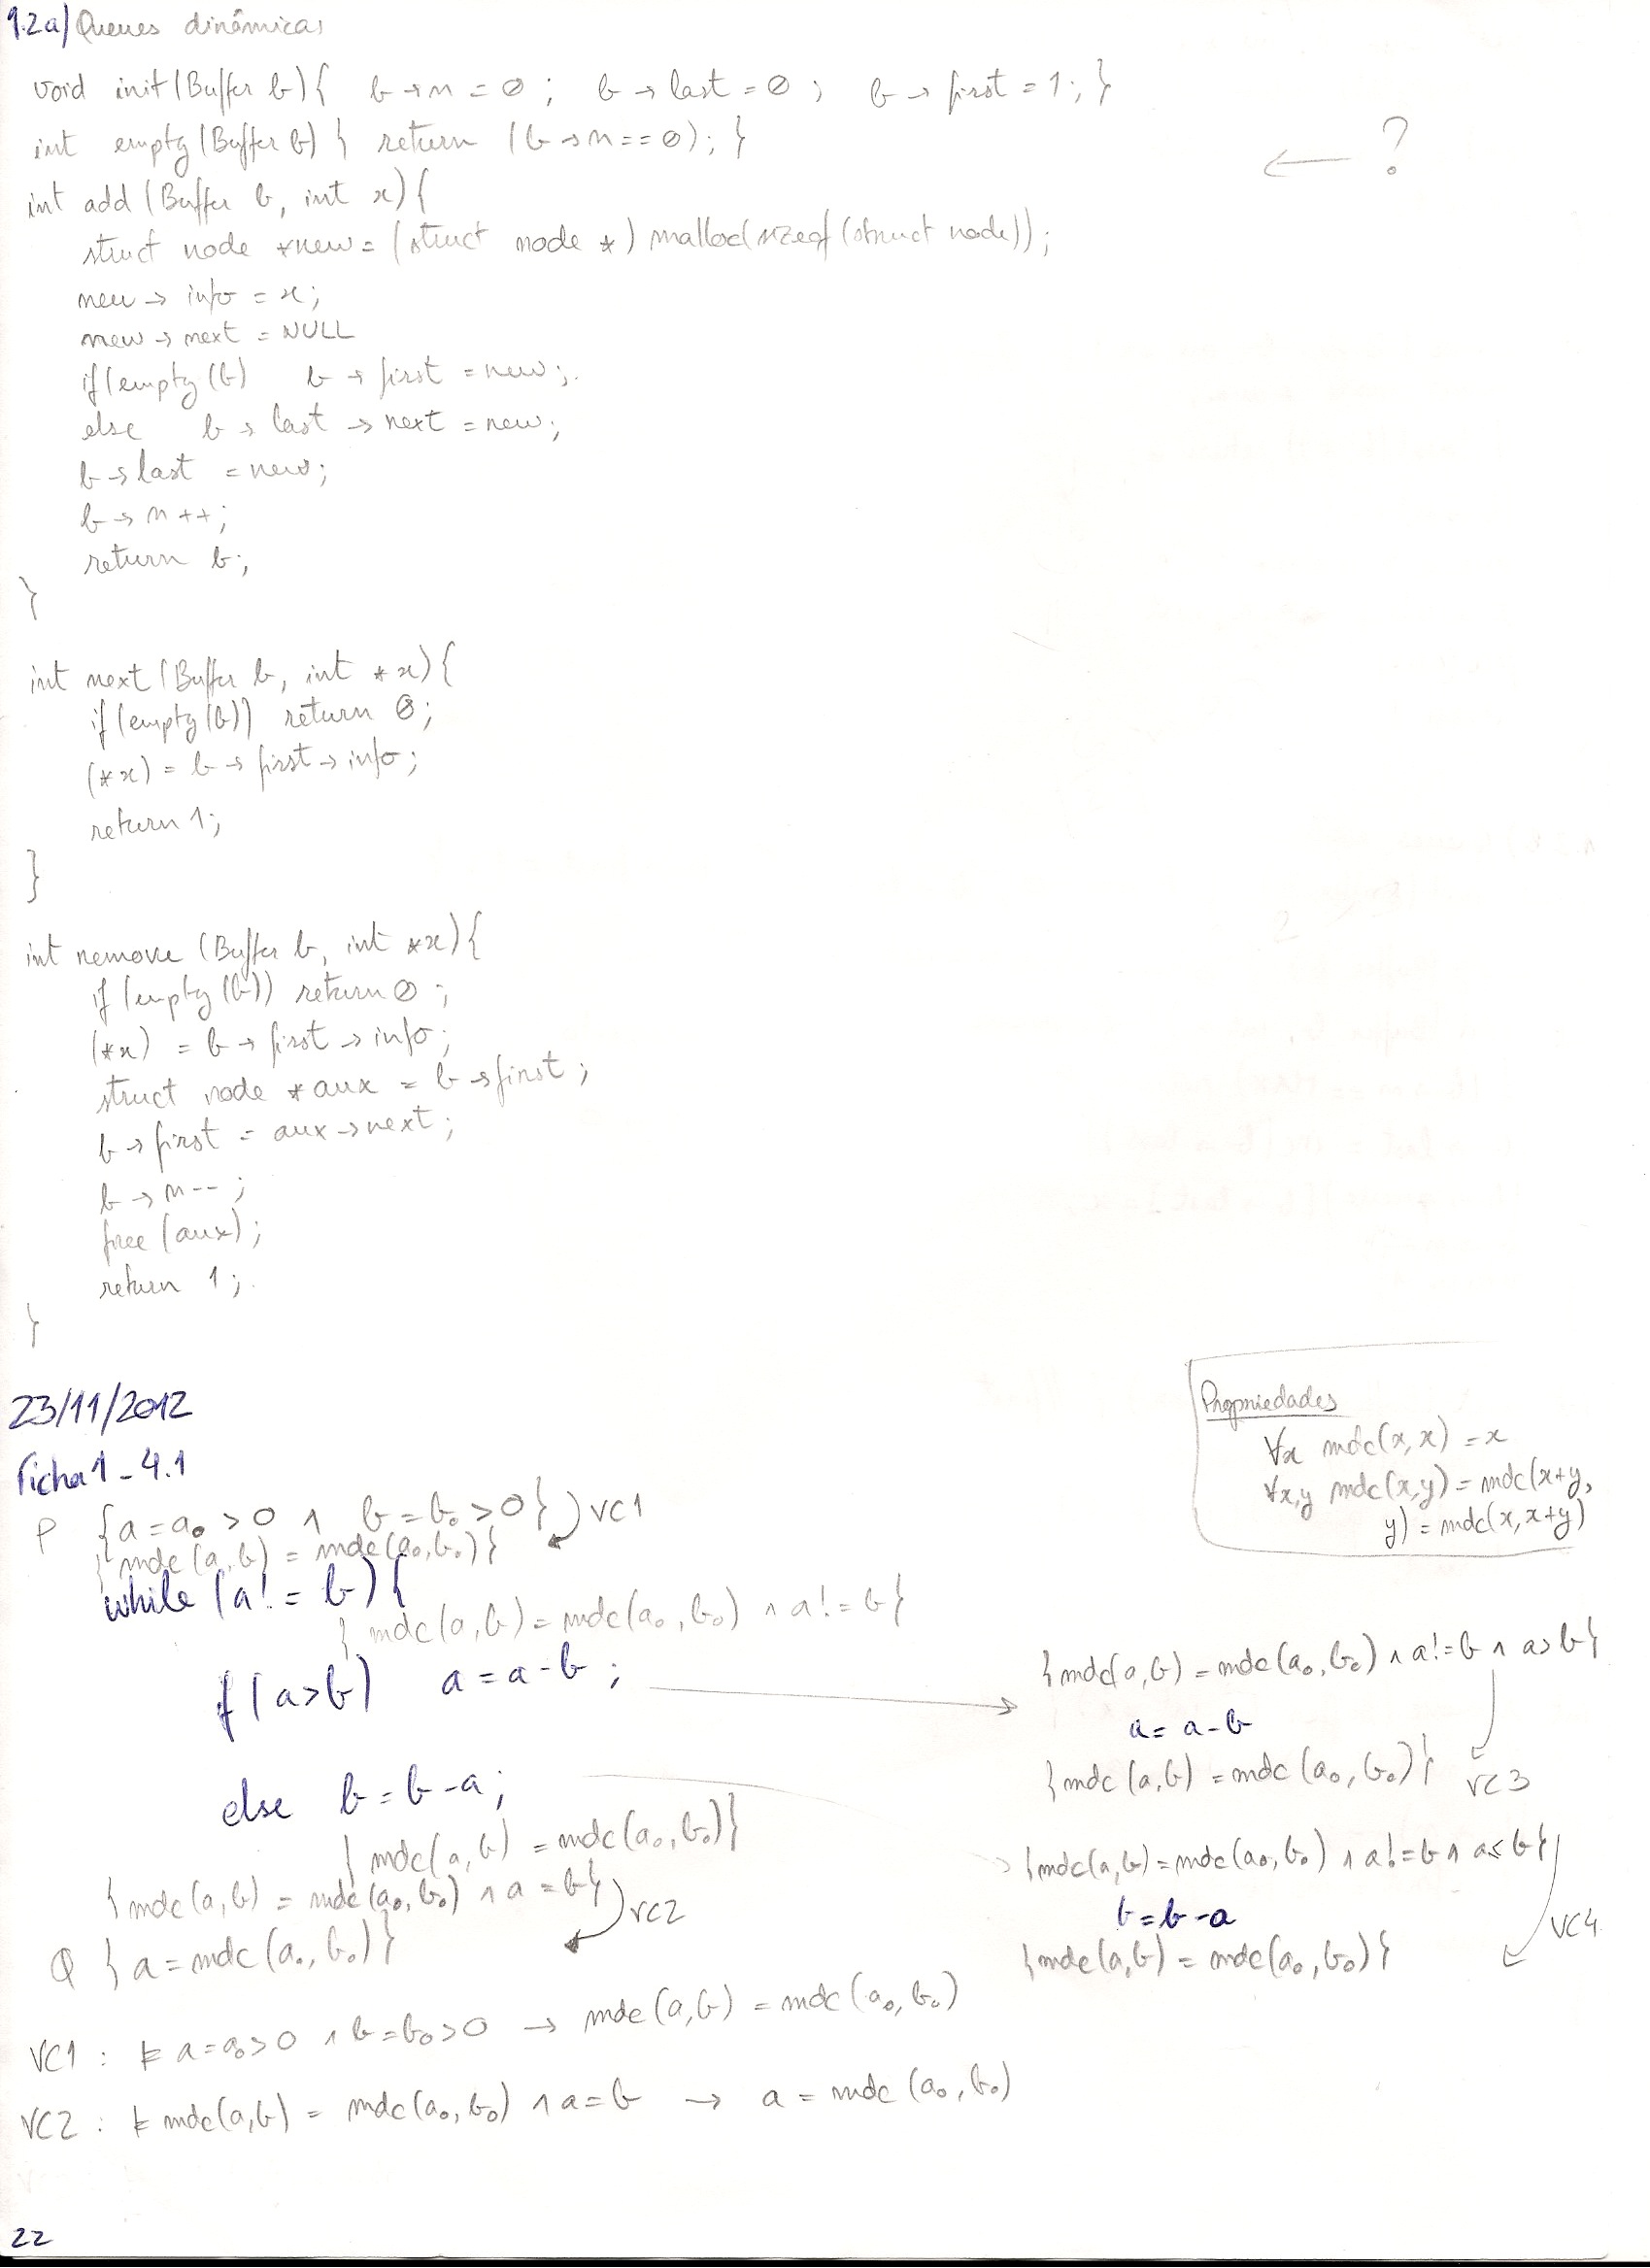 1.2a) Queues dinâmicas
void init(Buffer b){ b→n = 0; b→last = 0; b→first = 1; }
int empty(Buffer b) { return (b→n == 0); }
← ?
int add (Buffer b, int x){
struct node *new = (struct node *) malloc(sizeof (struct node));
new → info = x;
new → next = NULL
if(empty(b) b → first = new;
else b → last → next = new;
b → last = new;
b → n++;
return b;
}
int next (Buffer b, int *x){
if(empty(b)) return 0;
(*x) = b → first → info;
return 1;
}
int remove (Buffer b, int *x){
if (empty(b)) return 0;
(*x) = b → first → info;
struct node *aux = b → first;
b → first = aux → next;
b → n--;
free (aux);
return 1;
}
23/11/2012
Ficha 1 - 4.1
Propriedades
∀x mdc(x,x) = x
∀x,y mdc(x,y) = mdc(x+y,
y) = mdc(x,x+y)
P {a = a₀ > 0 ∧ b = b₀ > 0} VC1
{mdc(a,b) = mdc(a₀,b₀)}
while (a != b){
{mdc(a,b) = mdc(a₀,b₀) ∧ a != b}
if (a>b) a = a-b;
else b = b-a;
{mdc(a,b) = mdc(a₀,b₀)}
{mdc(a,b) = mdc(a₀,b₀) ∧ a = b} VC2
Q {a = mdc(a₀,b₀)}
{mdc(a,b) = mdc(a₀,b₀) ∧ a != b ∧ a > b}
a = a-b
{mdc(a,b) = mdc(a₀,b₀)} VC3
{mdc(a,b) = mdc(a₀,b₀) ∧ a != b ∧ a ≤ b}
b = b-a
{mdc(a,b) = mdc(a₀,b₀)} VC4
VC1 : ⊨ a = a₀ > 0 ∧ b = b₀ > 0 → mdc(a,b) = mdc(a₀,b₀)
VC2 : ⊨ mdc(a,b) = mdc(a₀,b₀) ∧ a = b → a = mdc(a₀,b₀)
22